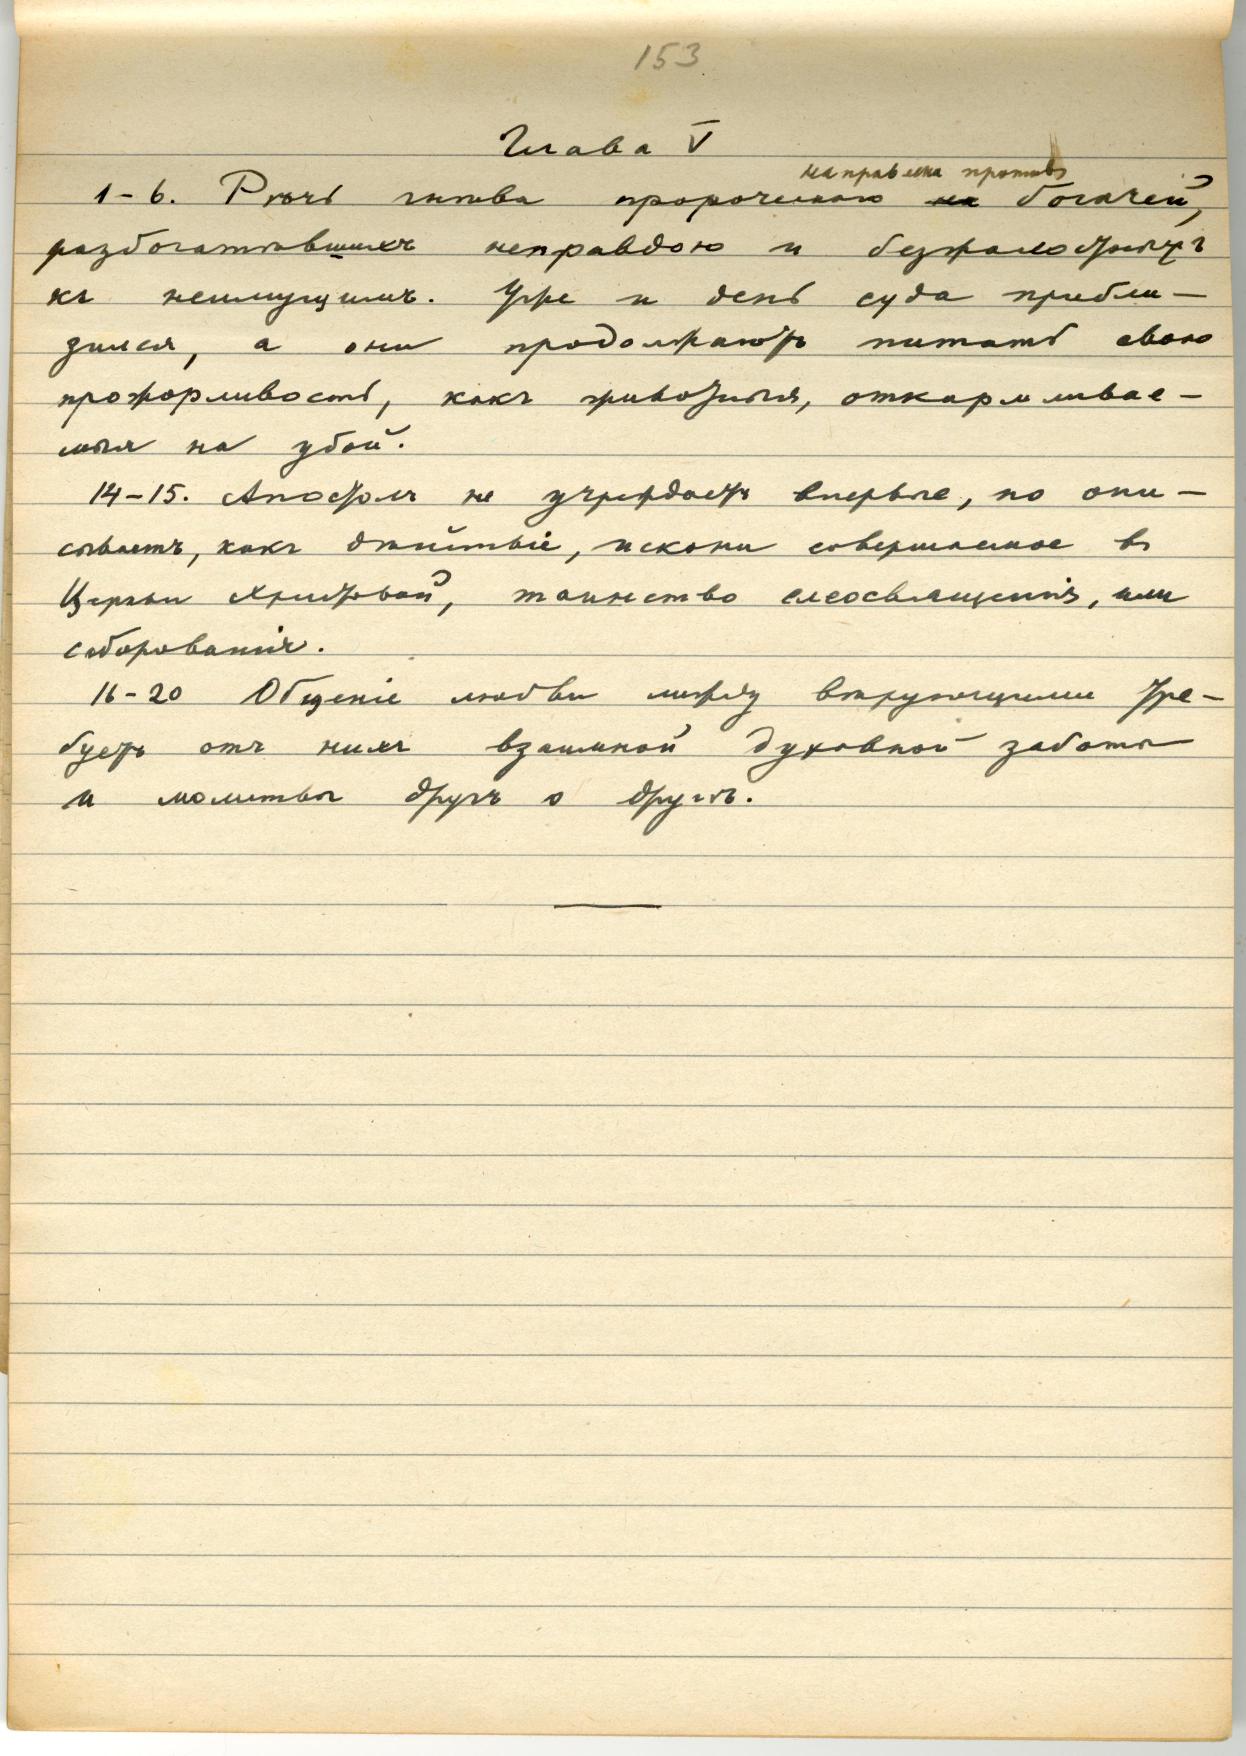 153
Глава V
направлена противъ
1-6. Рѣчь гнѣва пророческаго на богачей,
разбогатѣвшихъ неправдою и безжалостныхъ
къ неимущимъ. Уже и день суда прибли-
зился, а они продолжаютъ питать свою
прожорливость, какъ животныя, откармливае-
мыя на убой.
14-15. Апостолъ не учреждаетъ впервые, но опи-
сываетъ, какъ дѣйствіе, искони совершаемое въ
Церкви Христовой, таинство елеосвященія, или
соборованія.
16-20 Общеніе любви между вѣрующими тре-
буетъ отъ нихъ взаимной духовной заботы
и молитвы другъ о другѣ.